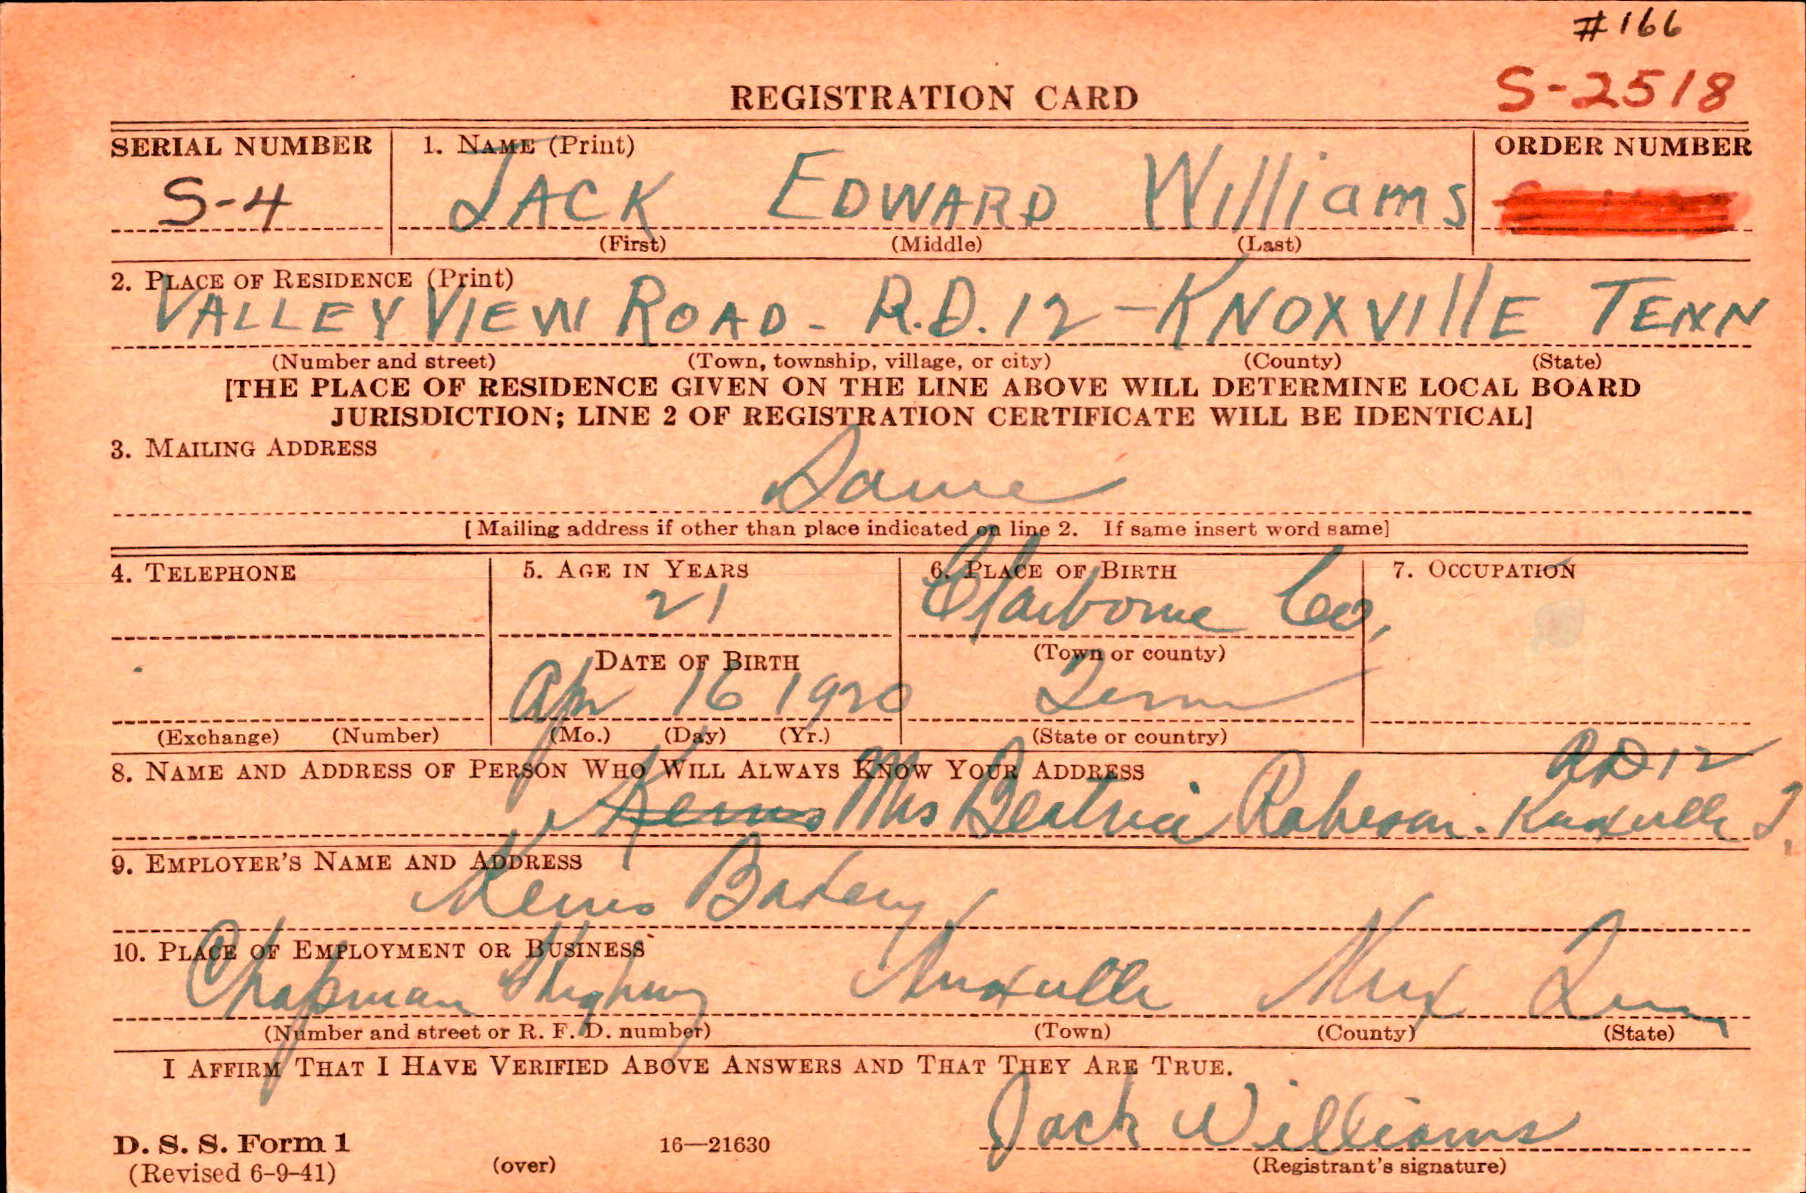 #166
S-2518
REGISTRATION CARD
SERIAL NUMBER
1. NAME (Print)
ORDER NUMBER
S-4
JACK EDWARD Williams
(First) (Middle) (Last)
2. PLACE OF RESIDENCE (Print)
VALLEY VIEW ROAD - R.D. 12 - KNOXVIllE TENN
(Number and street) (Town, township, village, or city) (County) (State)
[THE PLACE OF RESIDENCE GIVEN ON THE LINE ABOVE WILL DETERMINE LOCAL BOARD
JURISDICTION; LINE 2 OF REGISTRATION CERTIFICATE WILL BE IDENTICAL]
3. MAILING ADDRESS
Same
[Mailing address if other than place indicated on line 2. If same insert word same]
4. TELEPHONE
5. AGE IN YEARS
6. PLACE OF BIRTH
7. OCCUPATION
21
Claiborne Co.
DATE OF BIRTH
(Town or county)
Apr 16 1920
Tenn
(Exchange) (Number)
(Mo.) (Day) (Yr.)
(State or country)
8. NAME AND ADDRESS OF PERSON WHO WILL ALWAYS KNOW YOUR ADDRESS
RD 12
Kerns Mrs Beatrice Knoxville T.
9. EMPLOYER'S NAME AND ADDRESS
Kerns Bakery
10. PLACE OF EMPLOYMENT OR BUSINESS
Chapman Highway Knoxville Knox Tenn
(Number and street or R. F. D. number) (Town) (County) (State)
I AFFIRM THAT I HAVE VERIFIED ABOVE ANSWERS AND THAT THEY ARE TRUE.
Jack Williams
D. S. S. Form 1
(Revised 6-9-41)
(over)
16—21630
(Registrant's signature)